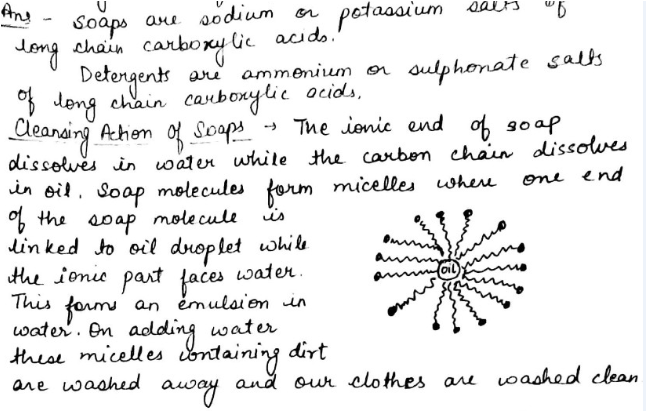 Ans - Soaps are sodium or potassium salts of
long chain carboxylic acids.
Detergents are ammonium or sulphonate salts
of long chain carboxylic acids.
Cleansing Action of Soaps → The ionic end of soap
dissolves in water while the carbon chain dissolves
in oil. Soap molecules form micelles where one end
of the soap molecule is
linked to oil droplet while
the ionic part faces water.
OIL
This forms an emulsion in
water. On adding water
these micelles containing dirt
are washed away and our clothes are washed clean